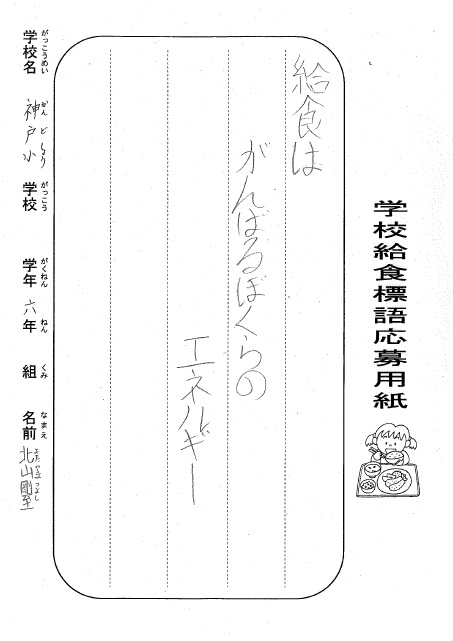 学校給食標語応募用紙
給食は
がんばるぼくらの
エネルギー
学校名 神戸小 学校 学年 六年 組 名前 北山剛至
がっこうめい かんどしょう がっこう がくねん ねん くみ なまえ きたやまつよし